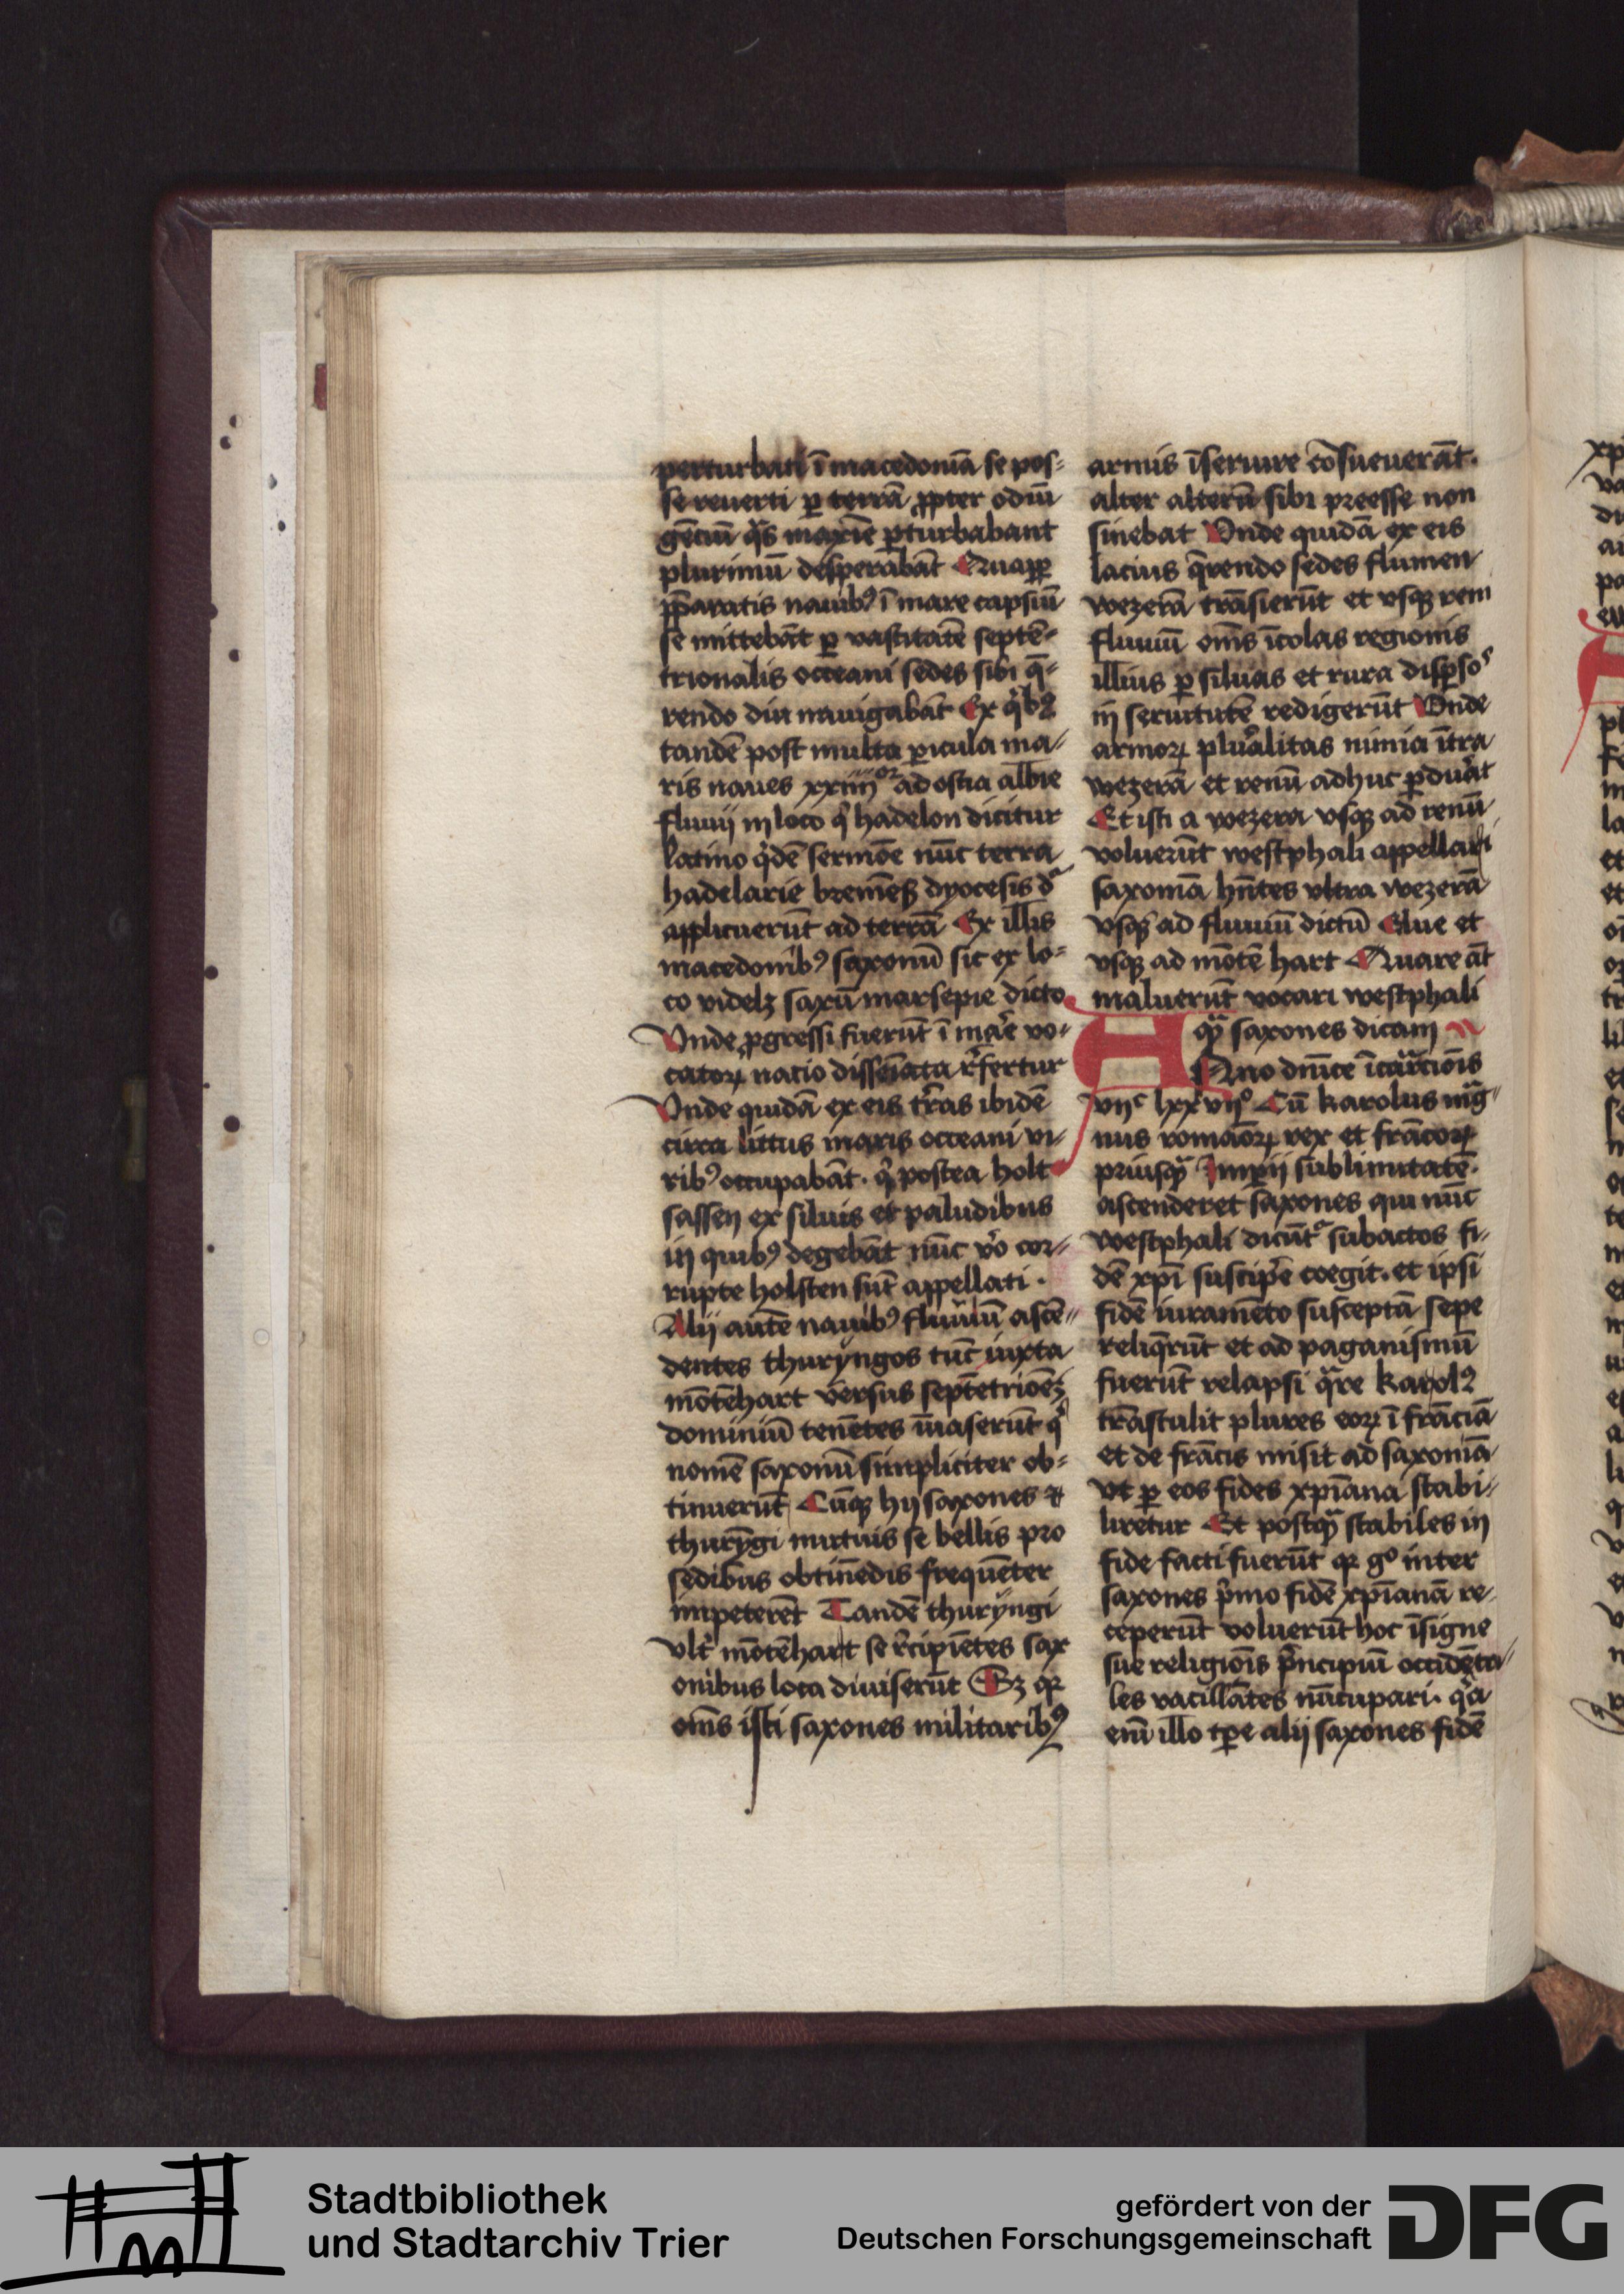 perturbati ī macedoniā se pos⸗
se reuerti ꝑ terrā ꝓpter odiū
gēciū q̄s maxīe ꝑturbabant
plurimū desperabāt Quaꝓp
p̄paratis nauibꝰ ī mare capsiū
se mittebāt ꝑ vastitatē septē⸗
trionalis occeani sedes sibi q̄⸗
rendo diu nauigabāt Ex qͥbꝰ
tandē post multa ꝑicula ma⸗
ris naues xxiiii or ad ostia albie
fluuij in loco qͥ hadelon dicitur
latino qͥdē sermōe nūc terra
hadelarie bremēß dyocesis dr̄
applicuerūt ad terrā Ex illis
macedonibꝰ saxonū sic ex lo⸗
co videlꝫ saxū marsepie dicto
Vnde ꝓgressi fuerūt ī mar̄e vo⸗
catoꝝ nacio dissēiata r̄fertur
Vnde quidā ex eis tr̄ras ibidē
circa littus maris occeani vi⸗
ribꝰ occupabāt. qͥ postea holt
sassen ex siluis et paludibus
in quibꝰ degebāt nūc vͦo cor⸗
rupte holsten sūt appellati.
Alij autē nauibꝰ fluuiū ascē⸗
dentes thuryngos tūc iuxta
mōtēhart versus septētrionēꝫ
dominiū tenētes īuaserūt qͥ
nomē saxonū simpliciter ob⸗
tinuerūt Cūqꝫ hij saxones ⁊
thurȳgi mutuis se bellis pro
sedibus obtinēdis frequēter
impeterēt Tandē thuryngi
vltͣ mōtēhart se r̄cipiētes sax
onibus loca diuiserūt Sꝫ qꝛ
om̄s isti saxones militaribꝰ
armis īseruire cōsueuerāt.
alter alterū sibi preesse non
sinebat Vnde quidā ex eis
lacius q̄rendo sedes flumen
wezerā trāsierūt et vsqꝫ reni
fluuiū om̄s īcolas regionis
illius ꝑ siluas et rura disꝑsos
in seruitutē redigerūt Vnde
armoꝝ plur̄alitas nimia ītra
wezerā et renū adhuc ꝑdur̄at
Et isti a wezera vsqꝫ ad renū
voluerūt westphali appellari
saxoniā hn̄tes vltra wezerā
vsqꝫ ad fluuiū dictū Elue et
vsqꝫ ad mōtē hart Quare āt
maluerūt vocari westphali
qͣꝫ saxones dicam
Anno dn̄ice īcar̄cionis
vijᶜ lxxvijͦ Cū karolus mag⸗
nus romāoꝝ rex et frācoꝝ
priusqͣꝫ Imꝑij sublimitatē
ascenderet saxones qui nūc
westphali dicūtᷣ subactos fi⸗
dē xp̄i suscipe coegit. et ipsi
fidē iuramēto susceptā sepe
reliq̄rūt et ad paganismū
fuerūt relapsi qͣre karolꝰ
trāstulit plures eoꝝ ī frāciā
et de frācis misit ad saxoniā
vt ꝑ eos fides xp̄iana stabi⸗
liretur Et postqͣꝫ stabiles in
fide facti fuerūt qꝛ gͦ inter
saxones pͥmo fidē xp̄ianā re⸗
ceperūt voluerūt hoc īsigne
sue religiōis pͥncipiū occidēta⸗
les vacillātes nūcupari. qͥa
eni illo tꝑe alij saxones fidē
Stadtbibliothek
und Stadtarchiv Trier
gefördert von der
Deutschen Forschungsgemeinschaft
DFG